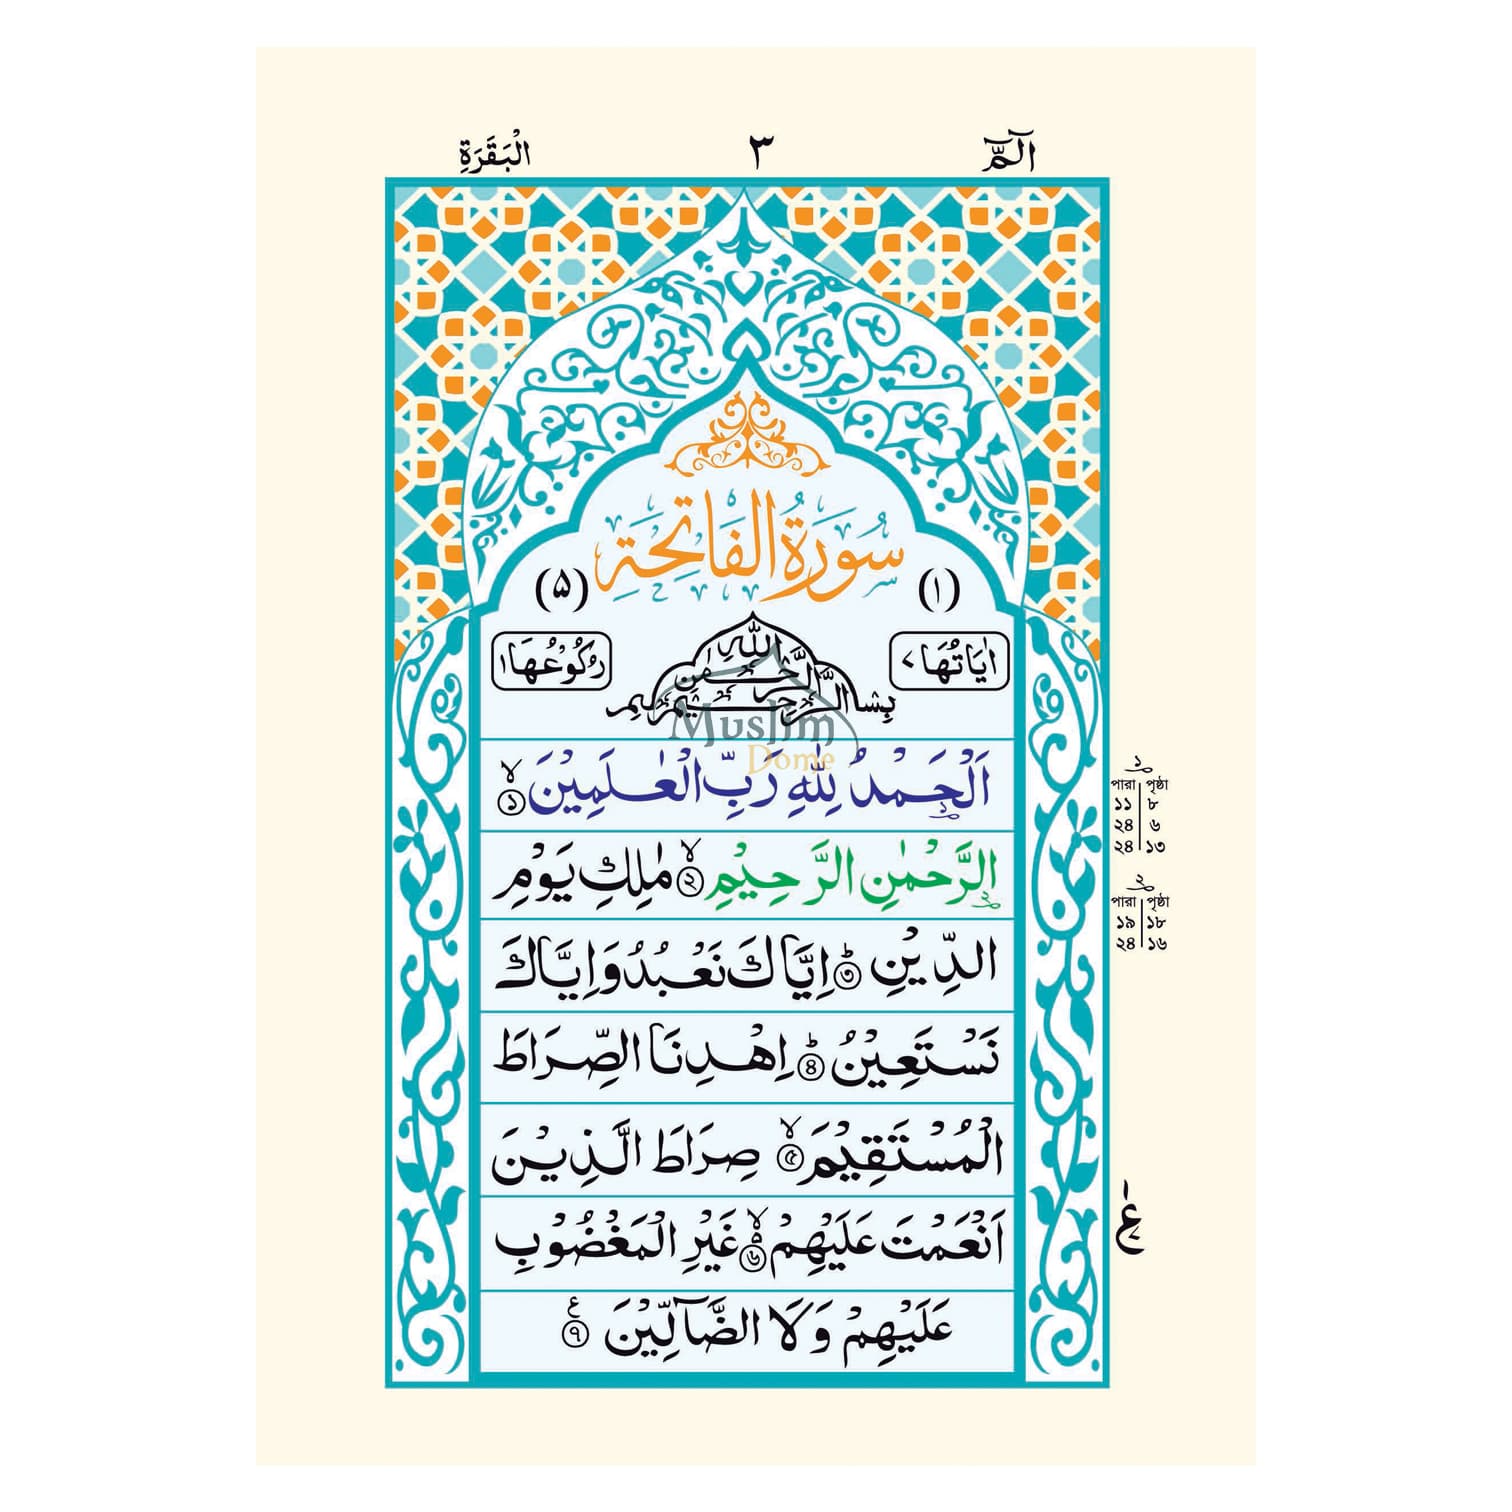 الٓمّٓ ٣ الْبَقَرَةِ
سُوْرَةُ الْفَاتِحَةِ
(١) (۵)
اٰيَاتُهَا ٧ رُكُوْعُهَا ١
بِسْمِ اللّٰهِ الرَّحْمٰنِ الرَّحِيْمِ
Muslim
Dome
اَلْحَمْدُ لِلّٰهِ رَبِّ الْعٰلَمِيْنَ ۙ ১
الرَّحْمٰنِ الرَّحِيْمِ ۙ ২ مٰلِكِ يَوْمِ
الدِّيْنِ ؕ ৩ اِيَّاكَ نَعْبُدُ وَاِيَّاكَ
نَسْتَعِيْنُ ؕ ৪ اِهْدِنَا الصِّرَاطَ
الْمُسْتَقِيْمَ ۙ ৫ صِرَاطَ الَّذِيْنَ
اَنْعَمْتَ عَلَيْهِمْ ۙ ৬ غَيْرِ الْمَغْضُوْبِ
عَلَيْهِمْ وَلَا الضَّآلِّيْنَ ۧ ৭
১
পারা পৃষ্ঠা
১১ ৮
২৪ ৬
২৪ ১৩
২
পারা পৃষ্ঠা
১৯ ১৮
২৪ ১৬